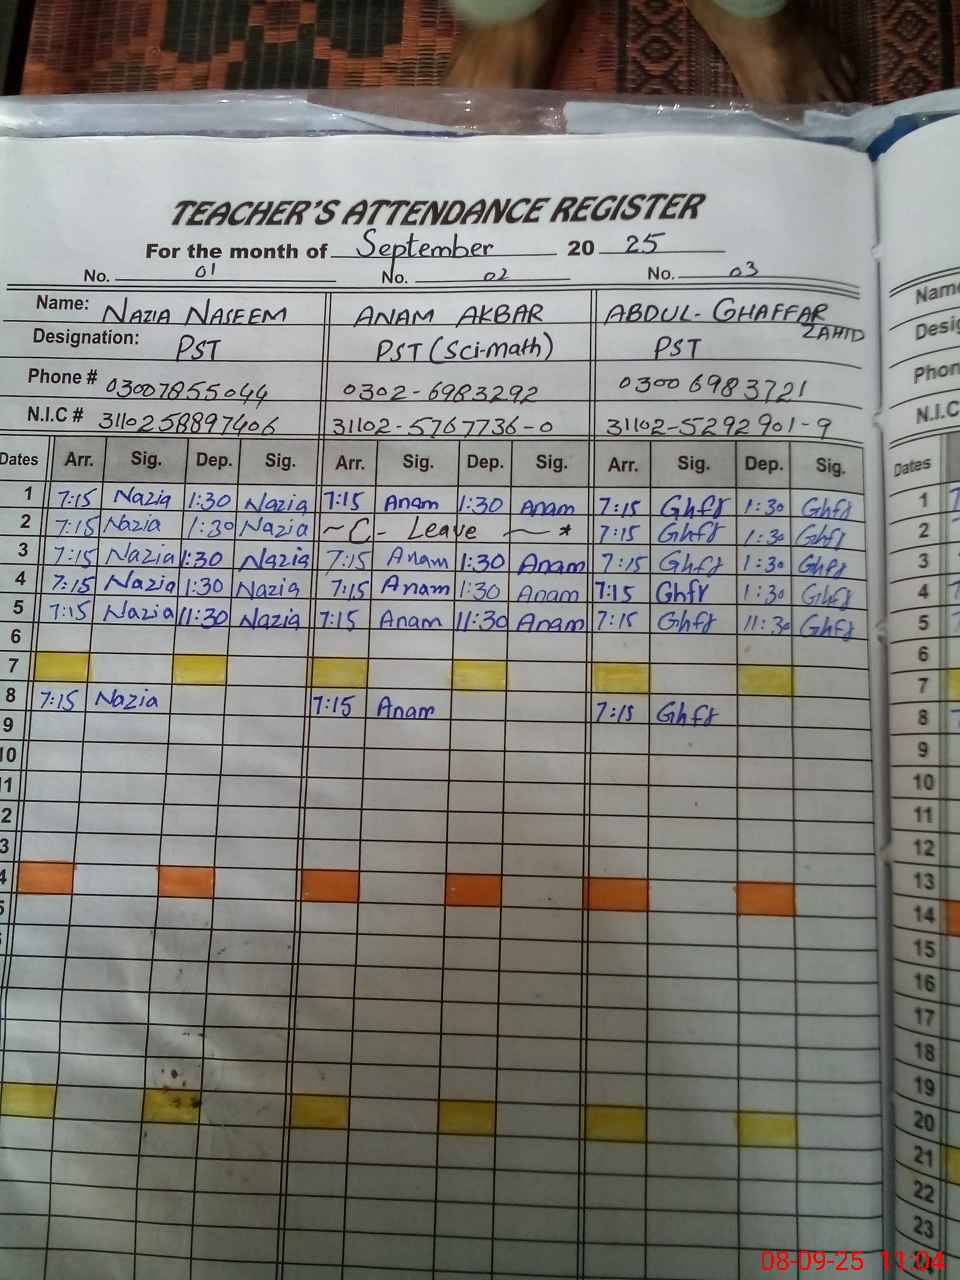 TEACHER'S ATTENDANCE REGISTER
For the month of September 20 25
No. 01 No. 02 No. 03
Name: NAZIA NASEEM ANAM AKBAR ABDUL-GHAFFAR ZAHID
Designation: PST PST (Sci-math) PST
Phone # 03007855044 0302-6983292 03006983721
N.I.C # 3110258897406 31102-5767736-0 31102-5292901-9
Dates Arr. Sig. Dep. Sig. Arr. Sig. Dep. Sig. Arr. Sig. Dep. Sig.
1 7:15 Nazia 1:30 Nazia 7:15 Anam 1:30 Anam 7:15 Ghfr 1:30 Ghfr
2 7:15 Nazia 1:30 Nazia ~C- Leave ~* 7:15 Ghfr 1:30 Ghfr
3 7:15 Nazia 1:30 Nazia 7:15 Anam 1:30 Anam 7:15 Ghfr 1:30 Ghfr
4 7:15 Nazia 1:30 Nazia 7:15 Anam 1:30 Anam 7:15 Ghfr 1:30 Ghfr
5 7:15 Nazia 11:30 Nazia 7:15 Anam 11:30 Anam 7:15 Ghfr 11:30 Ghfr
6
7
8 7:15 Nazia 7:15 Anam 7:15 Ghfr
9
10
11
2
3
4
5
Name
Desig
Phon
N.I.C
Dates
1
2
3
4
5
6
7
8
9
10
11
12
13
14
15
16
17
18
19
20
21
22
23
08-09-25 11:04